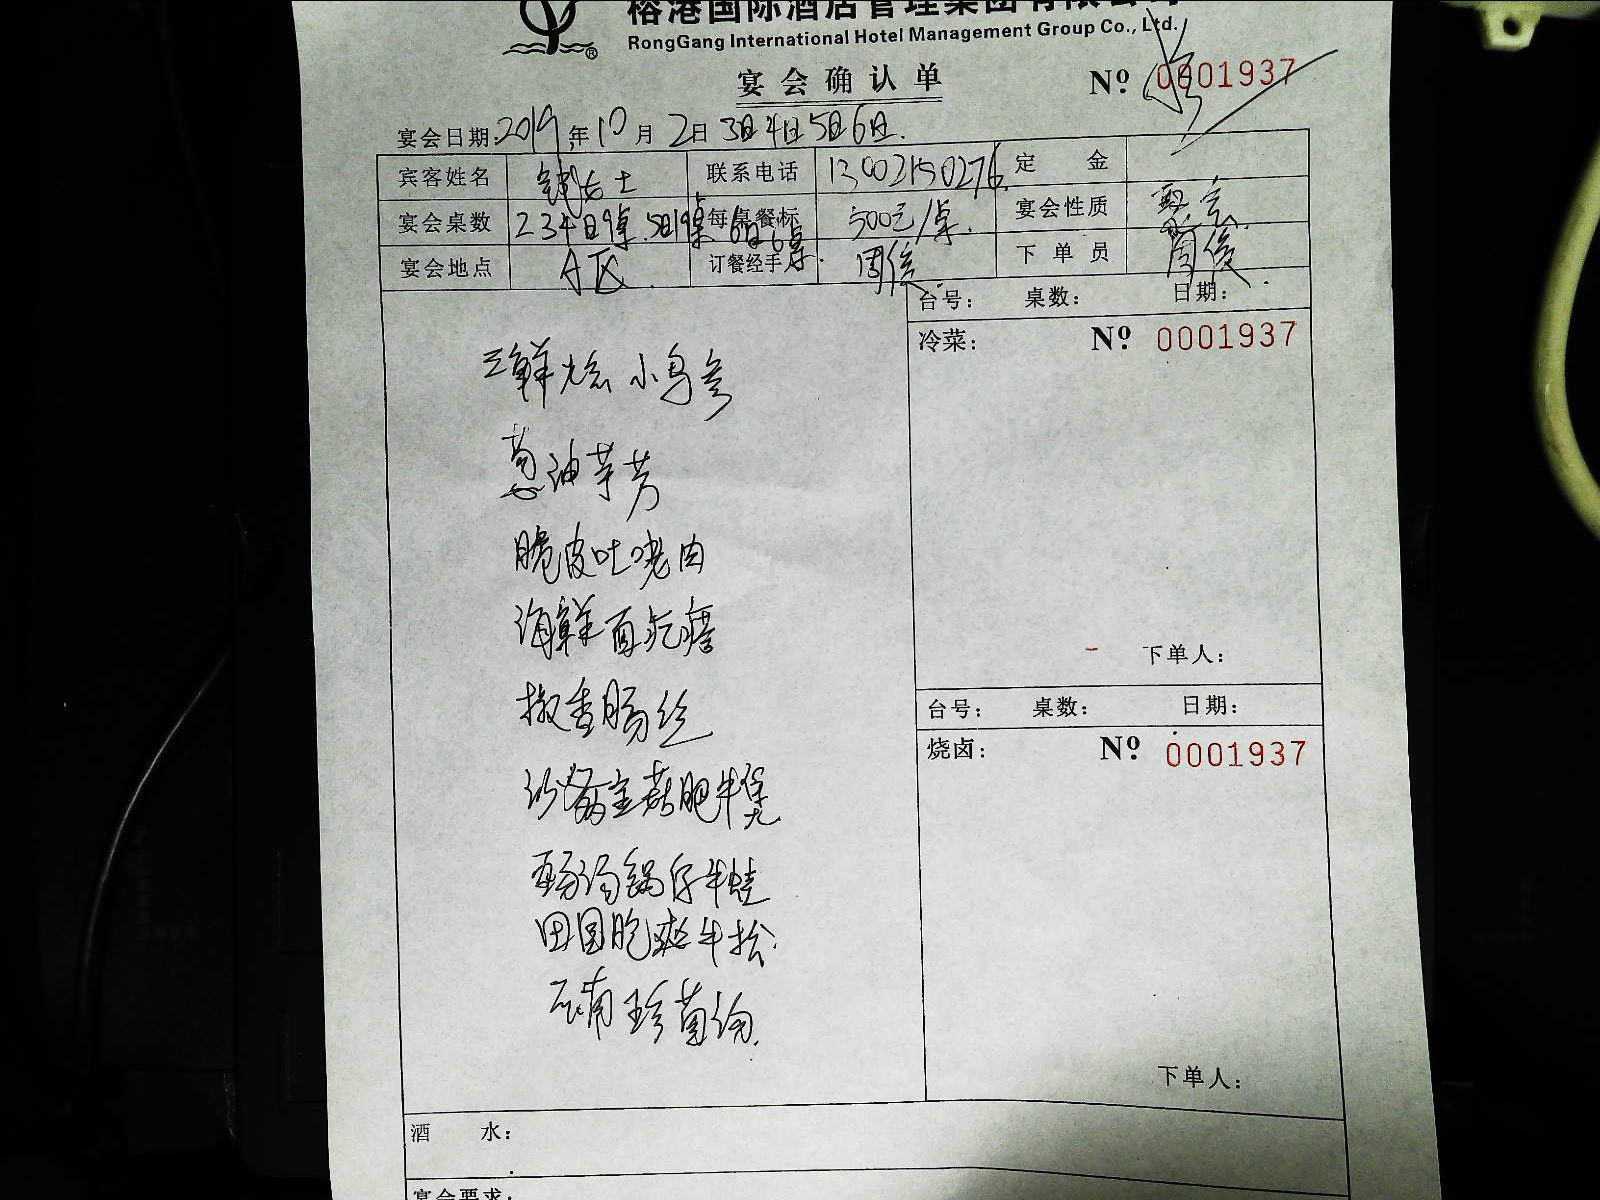 榕港国际酒店管理集团有限公司
RongGang International Hotel Management Group Co., Ltd.
宴会确认单 Nº 0001937
宴会日期: 2019年10月2日 3日4日5日6日.
宾客姓名 钱女士 联系电话 13002150276. 定金
宴会桌数 234日9桌.5日19桌.6日6桌. 每桌餐标 500元/桌. 宴会性质 聚会.
宴会地点 A区. 订餐经手 周俊. 下单员 周俊.
台号: 桌数: 日期:
冷菜: Nº 0001937
三鲜烩小乌参
葱油芋艿
脆皮吐咾肉
海鲜面疙瘩
椒香肠丝
沙爹金菇肥牛煲
锅仔牛蛙
田园脆爽牛松
珍菌汤.
下单人:
台号: 桌数: 日期:
烧卤: Nº 0001937
下单人:
酒水:
宴会要求: